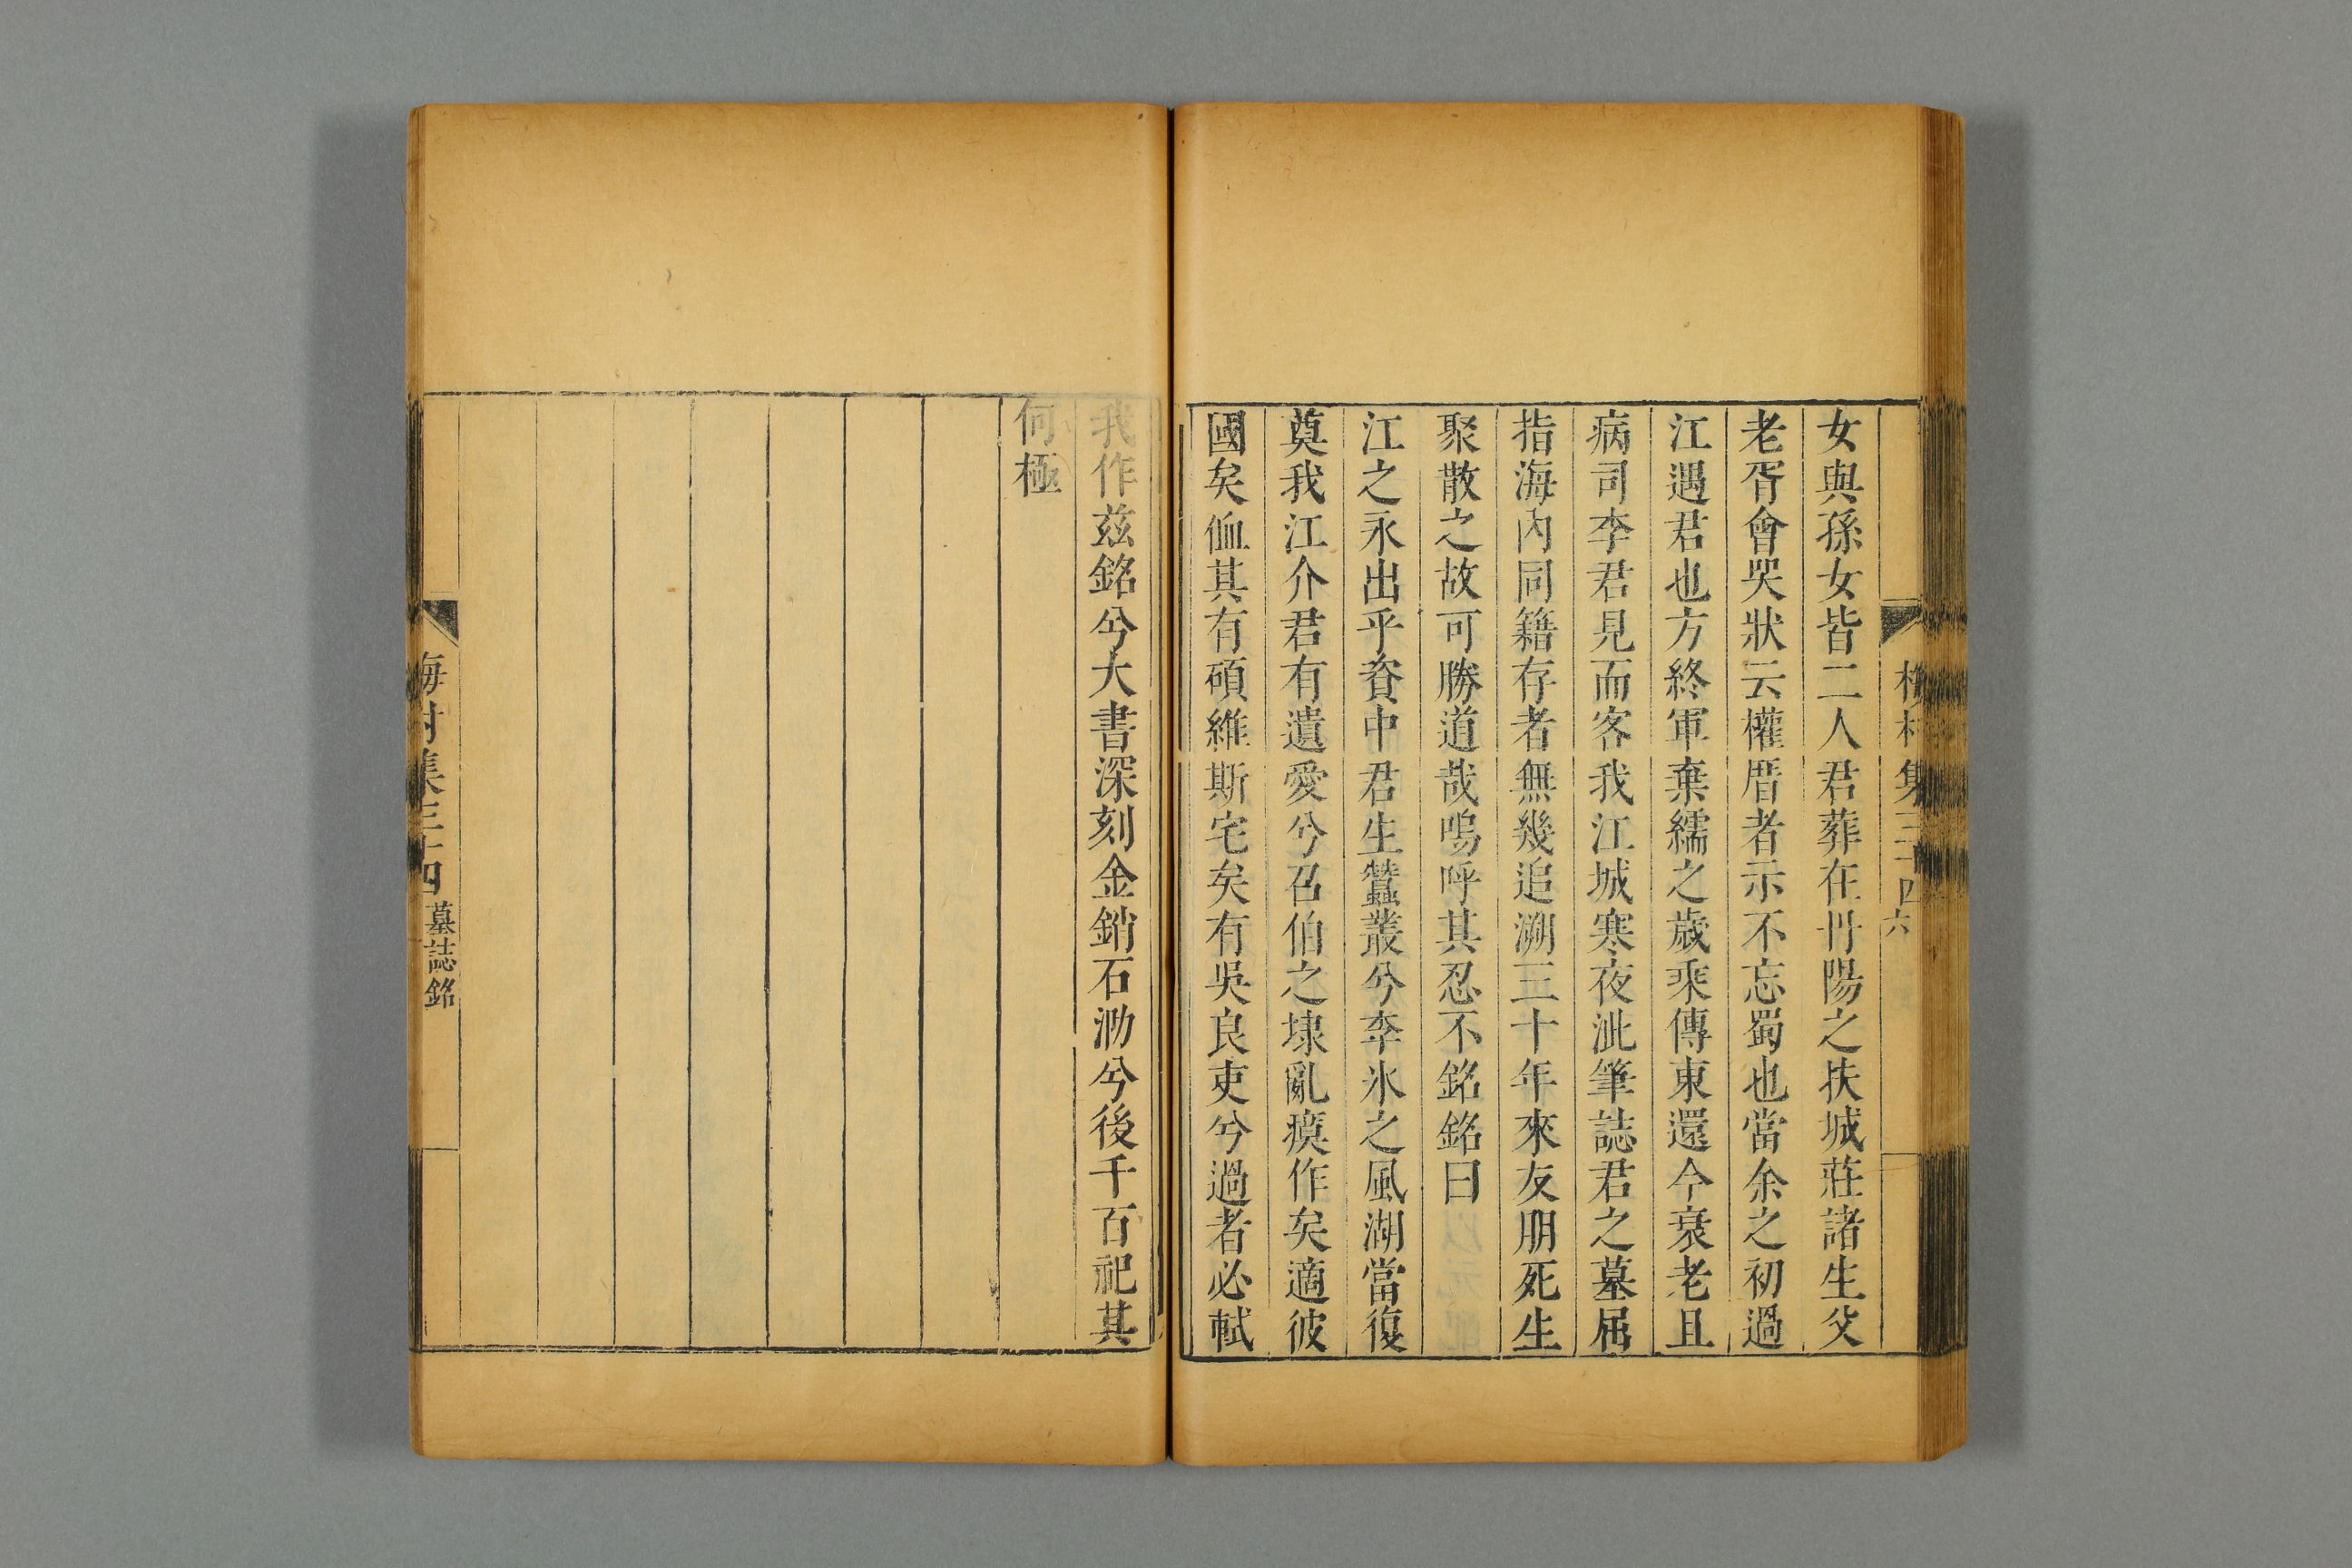 女與孫女皆二人君葬在丹陽之扶城莊諸生父
老胥會哭狀云權厝者示不忘蜀也當余之初過
江遇君也方終軍棄繻之歲乘傳東還今衰老且
病司李君見而客我江城寒夜泚筆誌君之墓屈
指海内同籍存者無幾追溯三十年來友朋死生
聚散之故可勝道哉嗚呼其忍不銘銘曰
江之永出乎資中君生蠶叢兮李氷之風湖當復
奠我江介君有遺愛兮召伯之埭亂瘼作矣適彼
國矣侐其有碩維斯宅矣有吳良吏兮過者必軾
我作茲銘兮大書深刻金銷石泐兮後千百祀其
何極
梅村集三十四
六
梅村集三十四 墓誌銘